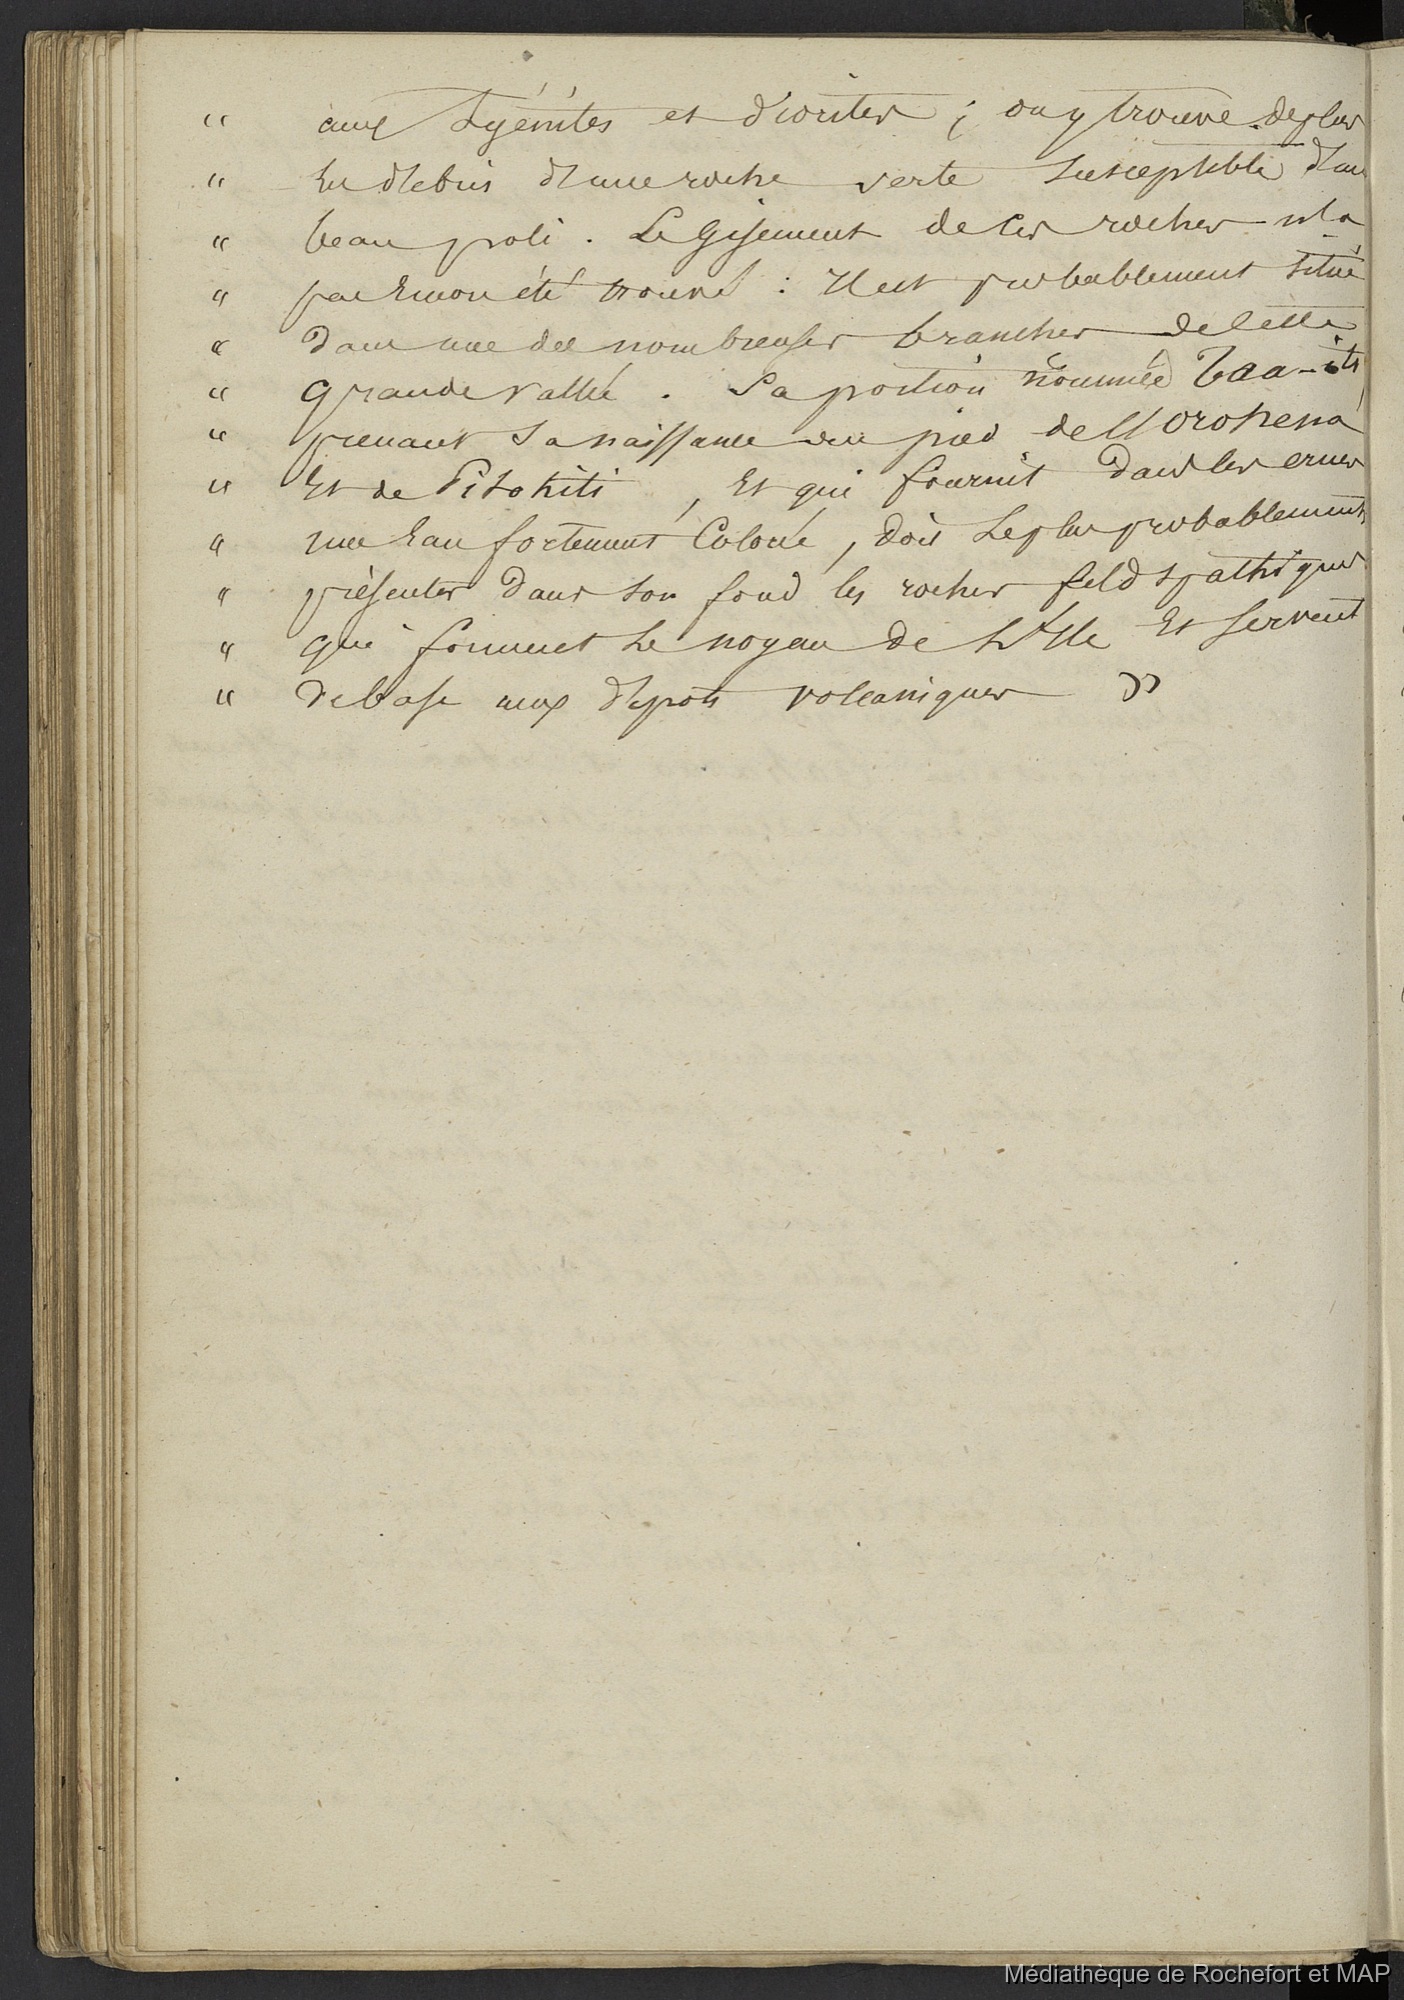 “ aux Syénites et diorites ; on y trouve de plus
“ les débris d'une roche verte susceptible d'un
“ beau poli . Le Gisement de ces roches n'a
“ pas encore été trouvé : Il est probablement situé
“ dans une des nombreuses branches de cette
“ grande vallée . La portion nommée
“ prenant sa naissance au pied de l'Orohena
“ Et de Pitohiti , Et qui fournit dans les crues
“ une Eau fortement Colorée , doit le plus probablement
“ présenter dans son fond les roches feldspathiques
“ qui forment le noyau de L'Ile Et servent
“ de base aux dépots volcaniques ”
Médiathèque de Rochefort et MAP